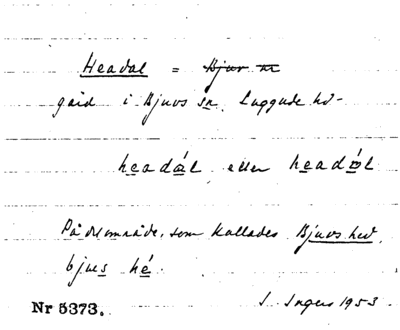 Headal = Bjuv nr
gård i Bjuvs sn. Luggude hd-
headál eller headål
På delområde, som kallades Bjuvs hed,
bjuvs hé.
Nr 5373. S. Ingers 1953.